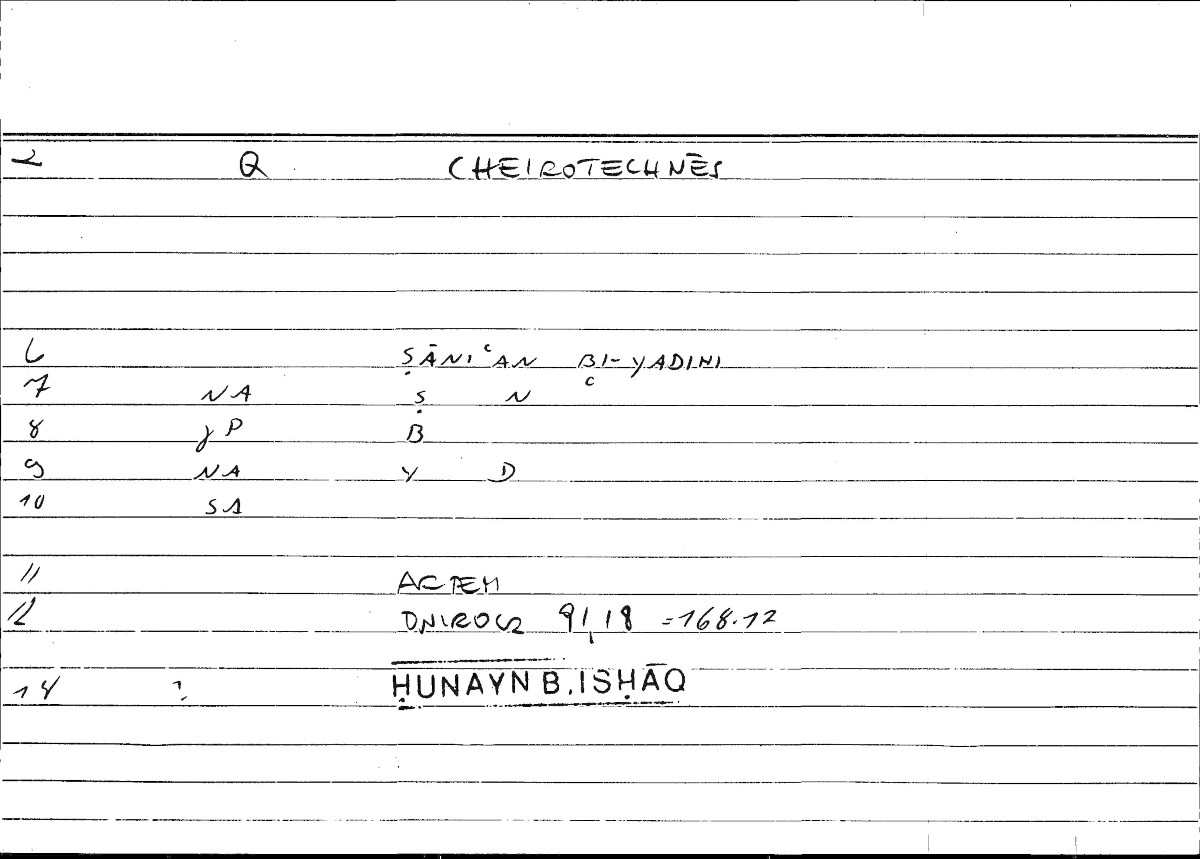 2 Q CHEIROTECHNĒS
6 ṢĀNIʿAN BI-YADIHI
7 NA Ṣ N
8 γP B
9 NA Y D
10 SA
11 ARTEM
12 ONIROCR 91,18 =168.12
14 ? ḤUNAYN B. ISḤĀQ